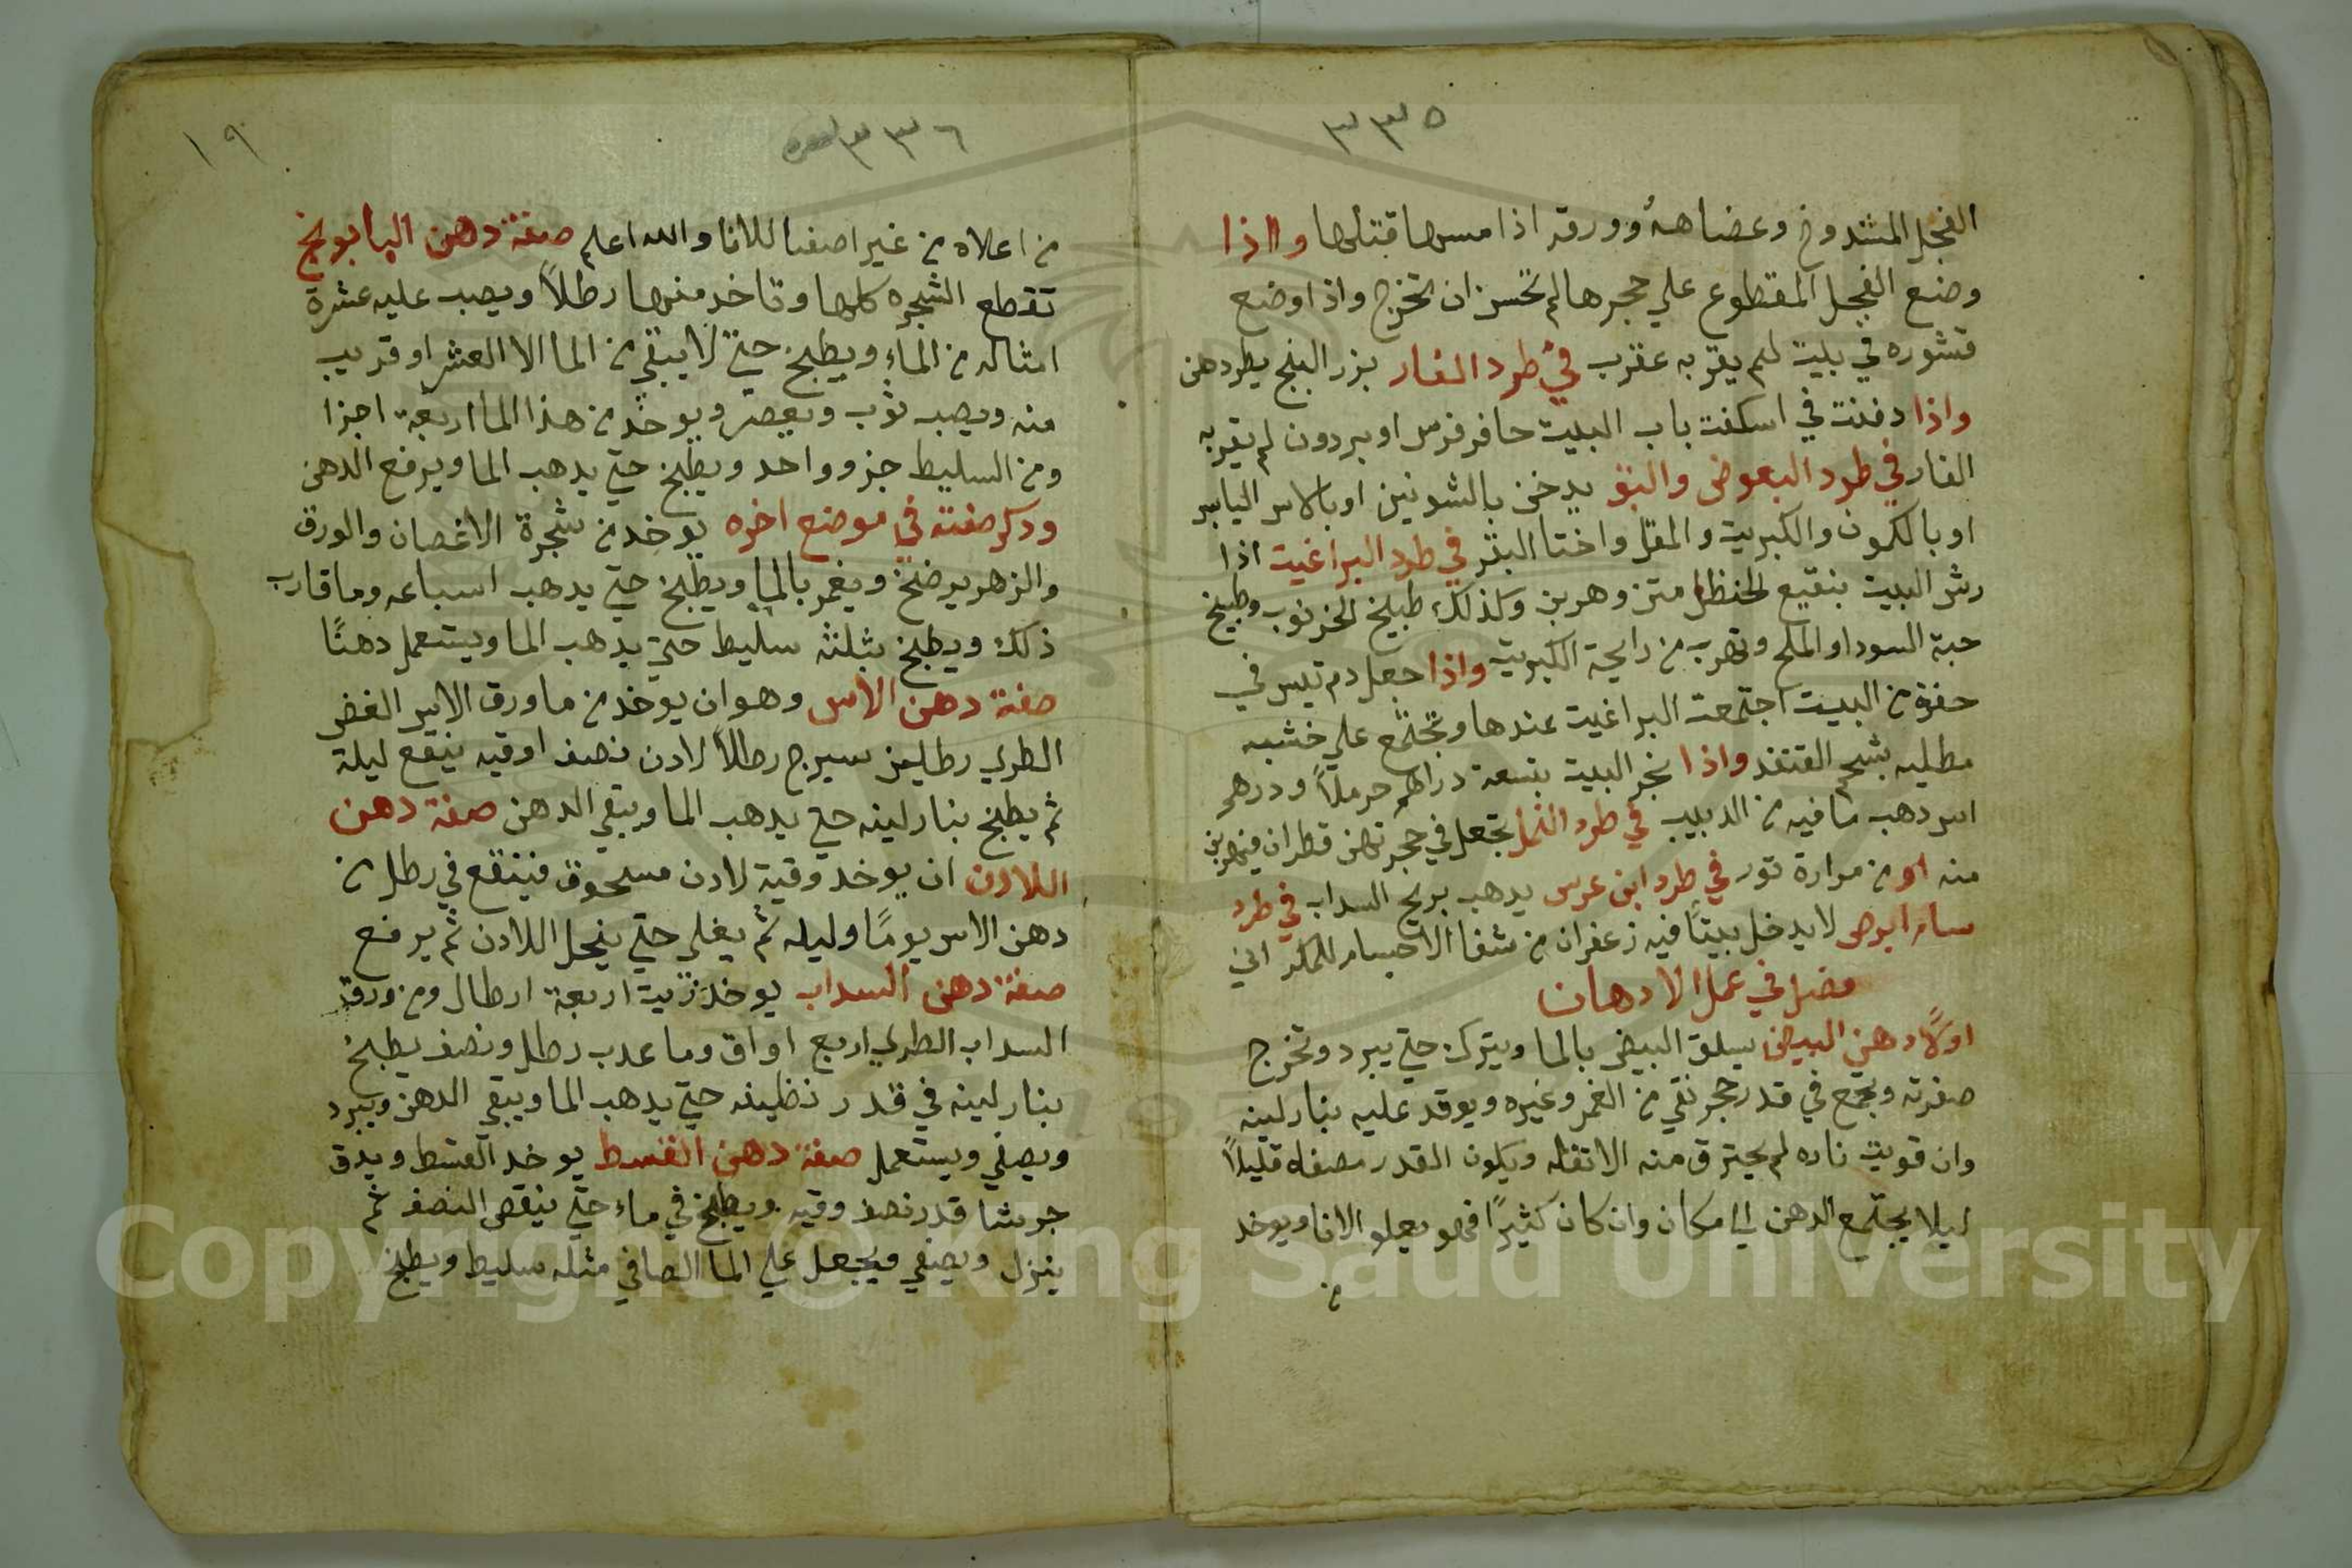 ٣٣٥
الفجل المشدوخ وعصاهۀ وورقه اذا مسها قتلها واذا
وضع الفجل المقطوع علي حجرها لم تحسن ان تخرج واذا وضع
قشوره في بيت لم يقربه عقرب في طرد الفار بزر البنج يطردهن
واذا دفنت في اسكفت باب البيت حافر فرس او بردون لم يقربه
الفار في طرد البعوض والبق يدخن بالشونيز او بالاس اليابس
او بالكمون والكبريت والمقل واختا البقر في طرد البراغيت اذا
رش البيت بنقيع الحنظل متن وهربن وكذلك طبيخ الخرنوب وطبيخ
حبة السودا والملح وتهرب من رايحة الكبريت واذا جعل دم تيس في
حفرة من البيت اجتمعت البراغيت عندها وتجتمع علي خشبه
مطليه بشحم القنفذ واذا بخر البيت بتسعة دراهم حرملاً ودرهم
اس دهب ما فيه من الدبيب في طرد النمل تجعل في حجرتهن قطران فيهربن
منه او من مرارة تور في طرد ابن عرس يدهب بريح السداب في طرد
سام ابرص لا يدخل بيتاً فيه زعفران من شفا الاجسام للكمراني
فصل في عمل الادهان
اولاً دهن البيض يسلق البيض بالما ويترك حتي يبرد وتخرج
صفرته ويجمع في قدر حجر نقي من الغمر وغيره ويوقد عليه بنار لينه
وان قويت ناره لم يحترق منه الا تقله ويكون القدر مصفاه قليلاً
ليلا يجتمع الدهن الي مكان وان كان كثيرًا فهو يعلو الانا ويوخد
من
٣٣٦
١٩
من اعلاه من غير اصفا للانا والله اعلم صفة دهن البابونج
تقطع الشجره كلها وتاخد منها رطلاً ويصب عليه عشرة
امثاله من الماء ويطبخ حتي لا يبقي من الما الا العشر او قريب
منه ويصب بثوب ويعصر ويوخد من هذا الما اربعة اجزا
ومن السليط جزو واحد ويطبخ حتي يدهب الما ويرفع الدهن
ودكر صفته في موضع اخره يوخد من شجرة الاغصان والورق
والزهر يرضخ ويغمر بالما ويطبخ حتي يدهب اسباعه وما قارب
ذلك ويطبخ بثلثه سليط حتي يدهب الما ويستعمل دهنًا
صفة دهن الاس وهو ان يوخد من ما ورق الاس الغض
الطري رطلين سيرج رطلاً لادن نصف اوقيه ينقع ليلة
ثم يطبخ بنار لينه حتي يدهب الما ويبقي الدهن صفة دهن
اللادن ان يوخد وقية لادن مسحوق فينقع في رطل من
دهن الاس يومًا وليله ثم يغلي حتي ينحل اللادن ثم يرفع
صفة دهن السداب يوخد زيت اربعة ارطال ومن ورق
السداب الطري اربع اواق وما عدب رطل ونصف يطبخ
بنار لينه في قدر نظيفه حتي يدهب الما ويبقي الدهن ويبرد
ويصفي ويستعمل صفة دهن القسط يوخد القسط ويدق
جريشا قدر نصف وقيه ويطبخ في ماء حتي ينقص النصف ثم
ينزل ويصفي ويجعل علي الما الصافي مثله سليط ويطبخ
Copyright © King Saud University